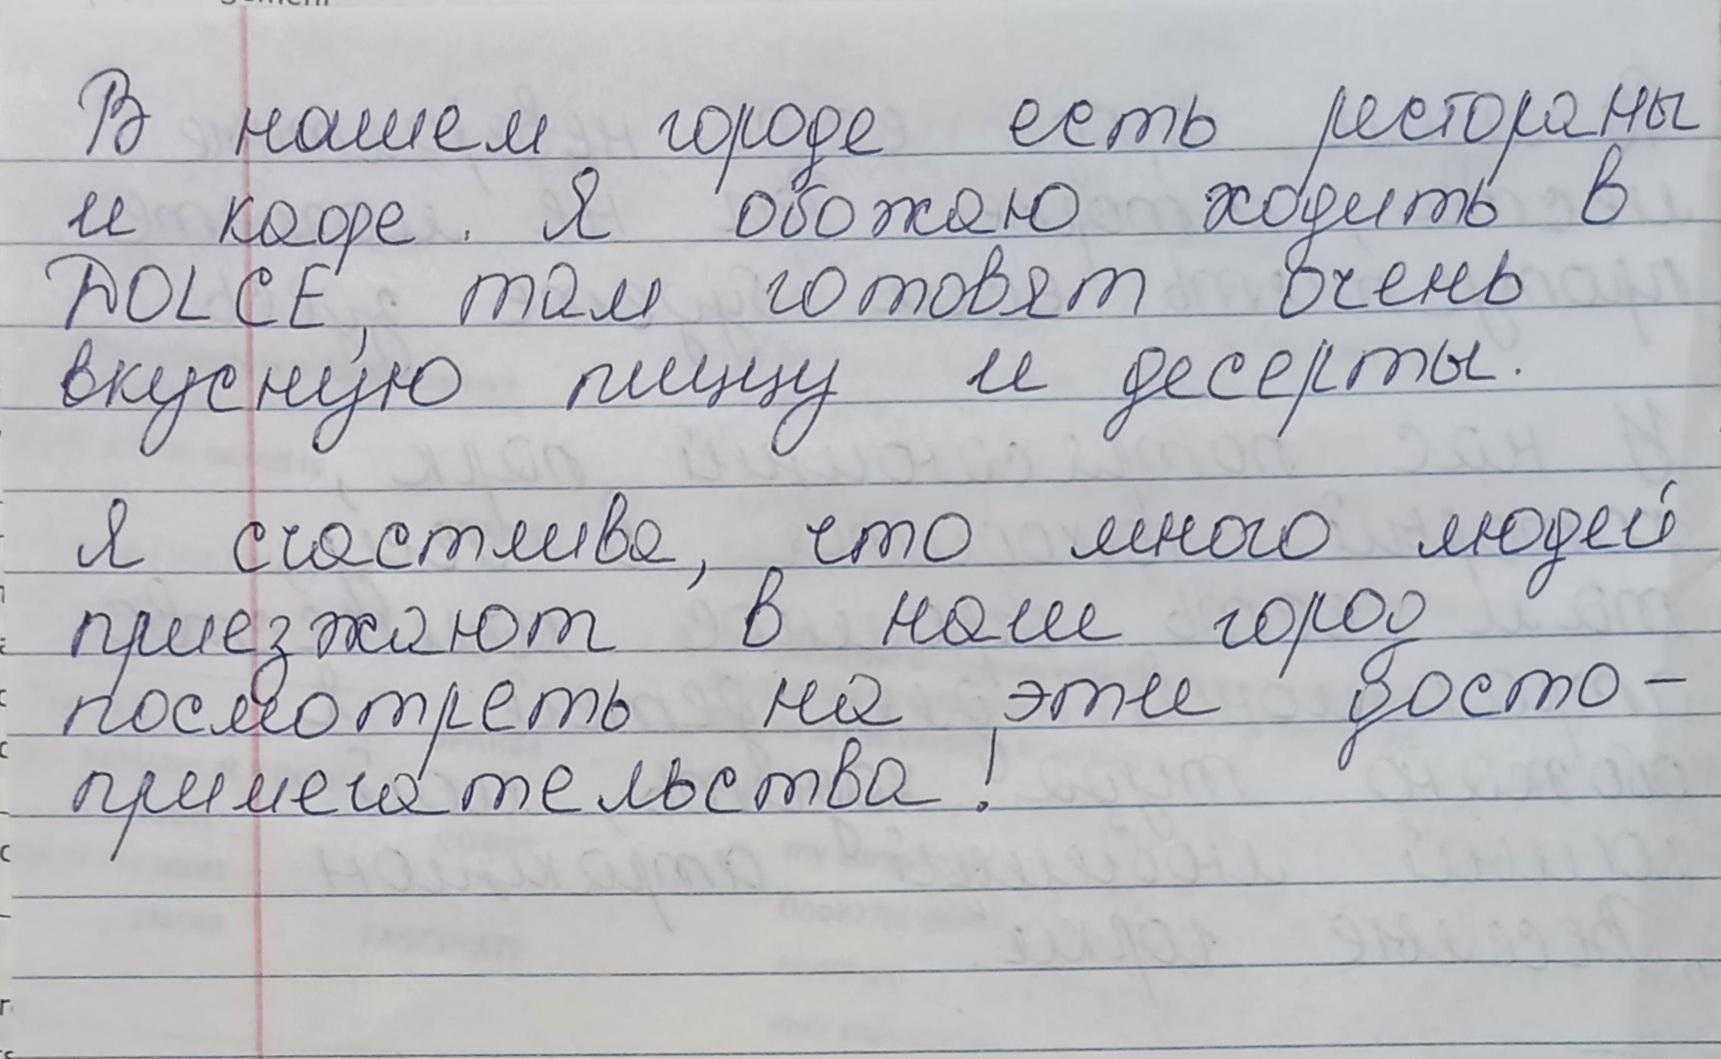 В нашем городе есть рестораны
и кафе. Я обожаю ходить в
DOLCE, там готовят очень
вкусную пиццу и десерты.
Я счастлива, что много людей
приезжают в наш город
посмотреть на эти досто-
примечательства!